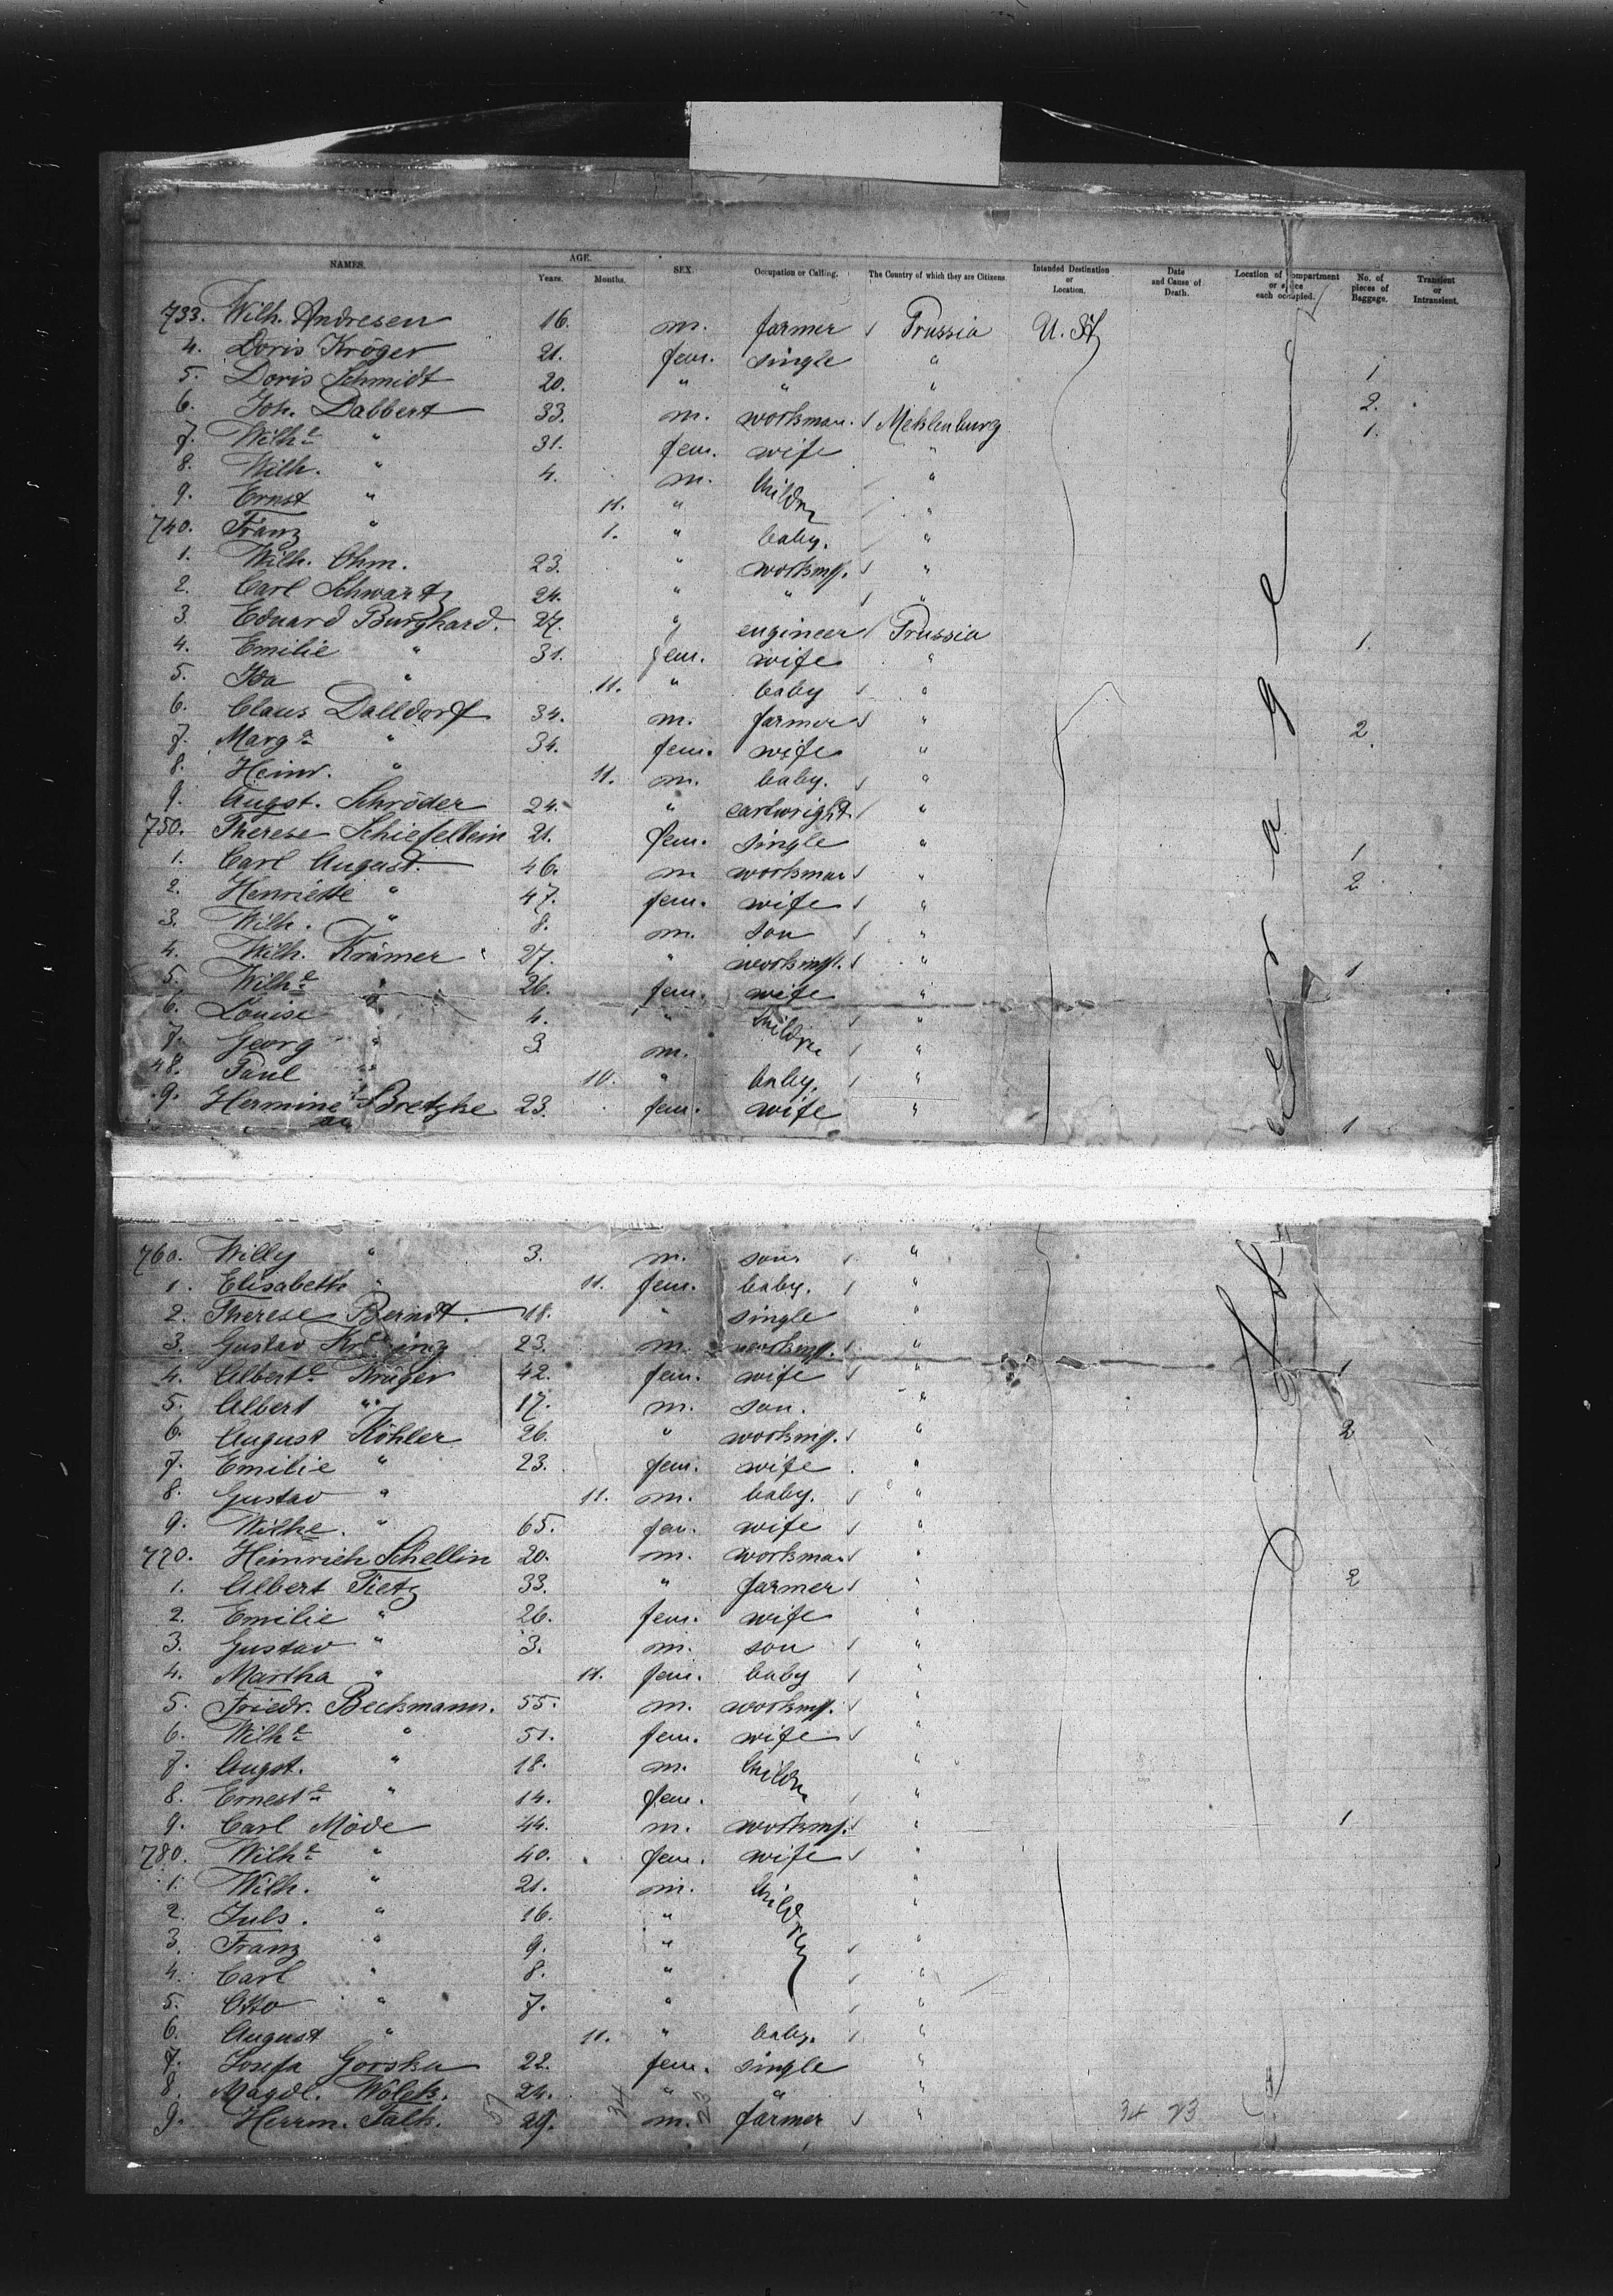 NAMES. AGE. Years. Months. SEX. Occupation or Calling. The Country of which they are Citizens. Intended Destination or Location. Date and Cause of Death. Location of compartment or space each occupied. No. of pieces of Baggage. Transient or Intransient.
733. Wilh. Andresen 16. m. farmer Prussia U. St
4. Doris Kröger 21. fem. single " 1
5. Doris Schmidt 20. " " " 2.
6. Joh. Dabbert 33. m. workman. Meklenburg 1.
7. Wilhe " 31. fem. wife "
8. Wilh. " 4. m. childr "
9. Ernst " 11. " "
740. Franz " 1. " baby. "
1. Wilh. Ohm. 23. " workm. "
2. Carl Schwartz 24. " " "
3. Eduard Burghard. 27. " engineer Prussia 1.
4. Emilie " 31. fem. wife "
5. Ida " 11. " baby "
6. Claus Dalldorf 34. m. farmer " 2.
7. Marga " 34. fem. wife "
8. Heinr. " 11. m. baby. "
9. Augst. Schröder 24. " cartwright "
750. Therese Schiefelbein 21. fem. single " 1
1. Carl August. 46. m workman " 2
2. Henriette " 47. fem. wife "
3. Wilh. " 8. m. son "
4. Wilh. Krämer 27. " workm. " 1
5. Wilhe " 26. fem. wife "
6. Louise " 4. " childre "
7. Georg " 3 m. "
48. Paul " 10. " baby. "
9. Hermine Bretzke 23. fem. wife " 1
760. Willy " 3. m. son "
1. Elisabeth " 11. fem. baby. "
2. Therese Berndt. 18. " single "
3. Gustav 23. m. workm. "
4. Alberte Krüger 42. fem. wife " 1
5. Albert " 17. m. son. "
6. August Köhler 26. " workm. " 2
7. Emilie " 23. fem. wife "
8. Gustav " 11. m. baby. "
9. Wilhe. " 65. fem. wife "
770. Heinrich Schellin 20. m. workman "
1. Albert Tietz 33. " farmer " 2
2. Emilie " 26. fem. wife "
3. Gustav " 3. m. son "
4. Martha " 11. fem. baby "
5. Friedr. Beckmann. 55. m. workm. "
6. Wilhe " 51. fem. wife "
7. Augst. " 18. m. childre "
8. Erneste " 14. fem. "
9. Carl Möde 44. m. workm. " 1
780. Wilhe " 40. fem. wife "
1. Wilh. " 21. m. children "
2. Juls. " 16. " "
3. Franz " 9. " "
4. Carl " 8. " "
5. Otto " 7. " "
6. August " 11. " baby. "
7. Josefa Gorska 22. fem. single "
8. Magdl. Wölck. 24. " " "
9. Herrm. Falk. 29. m. farmer "
57 34 23 34 23
Steerage